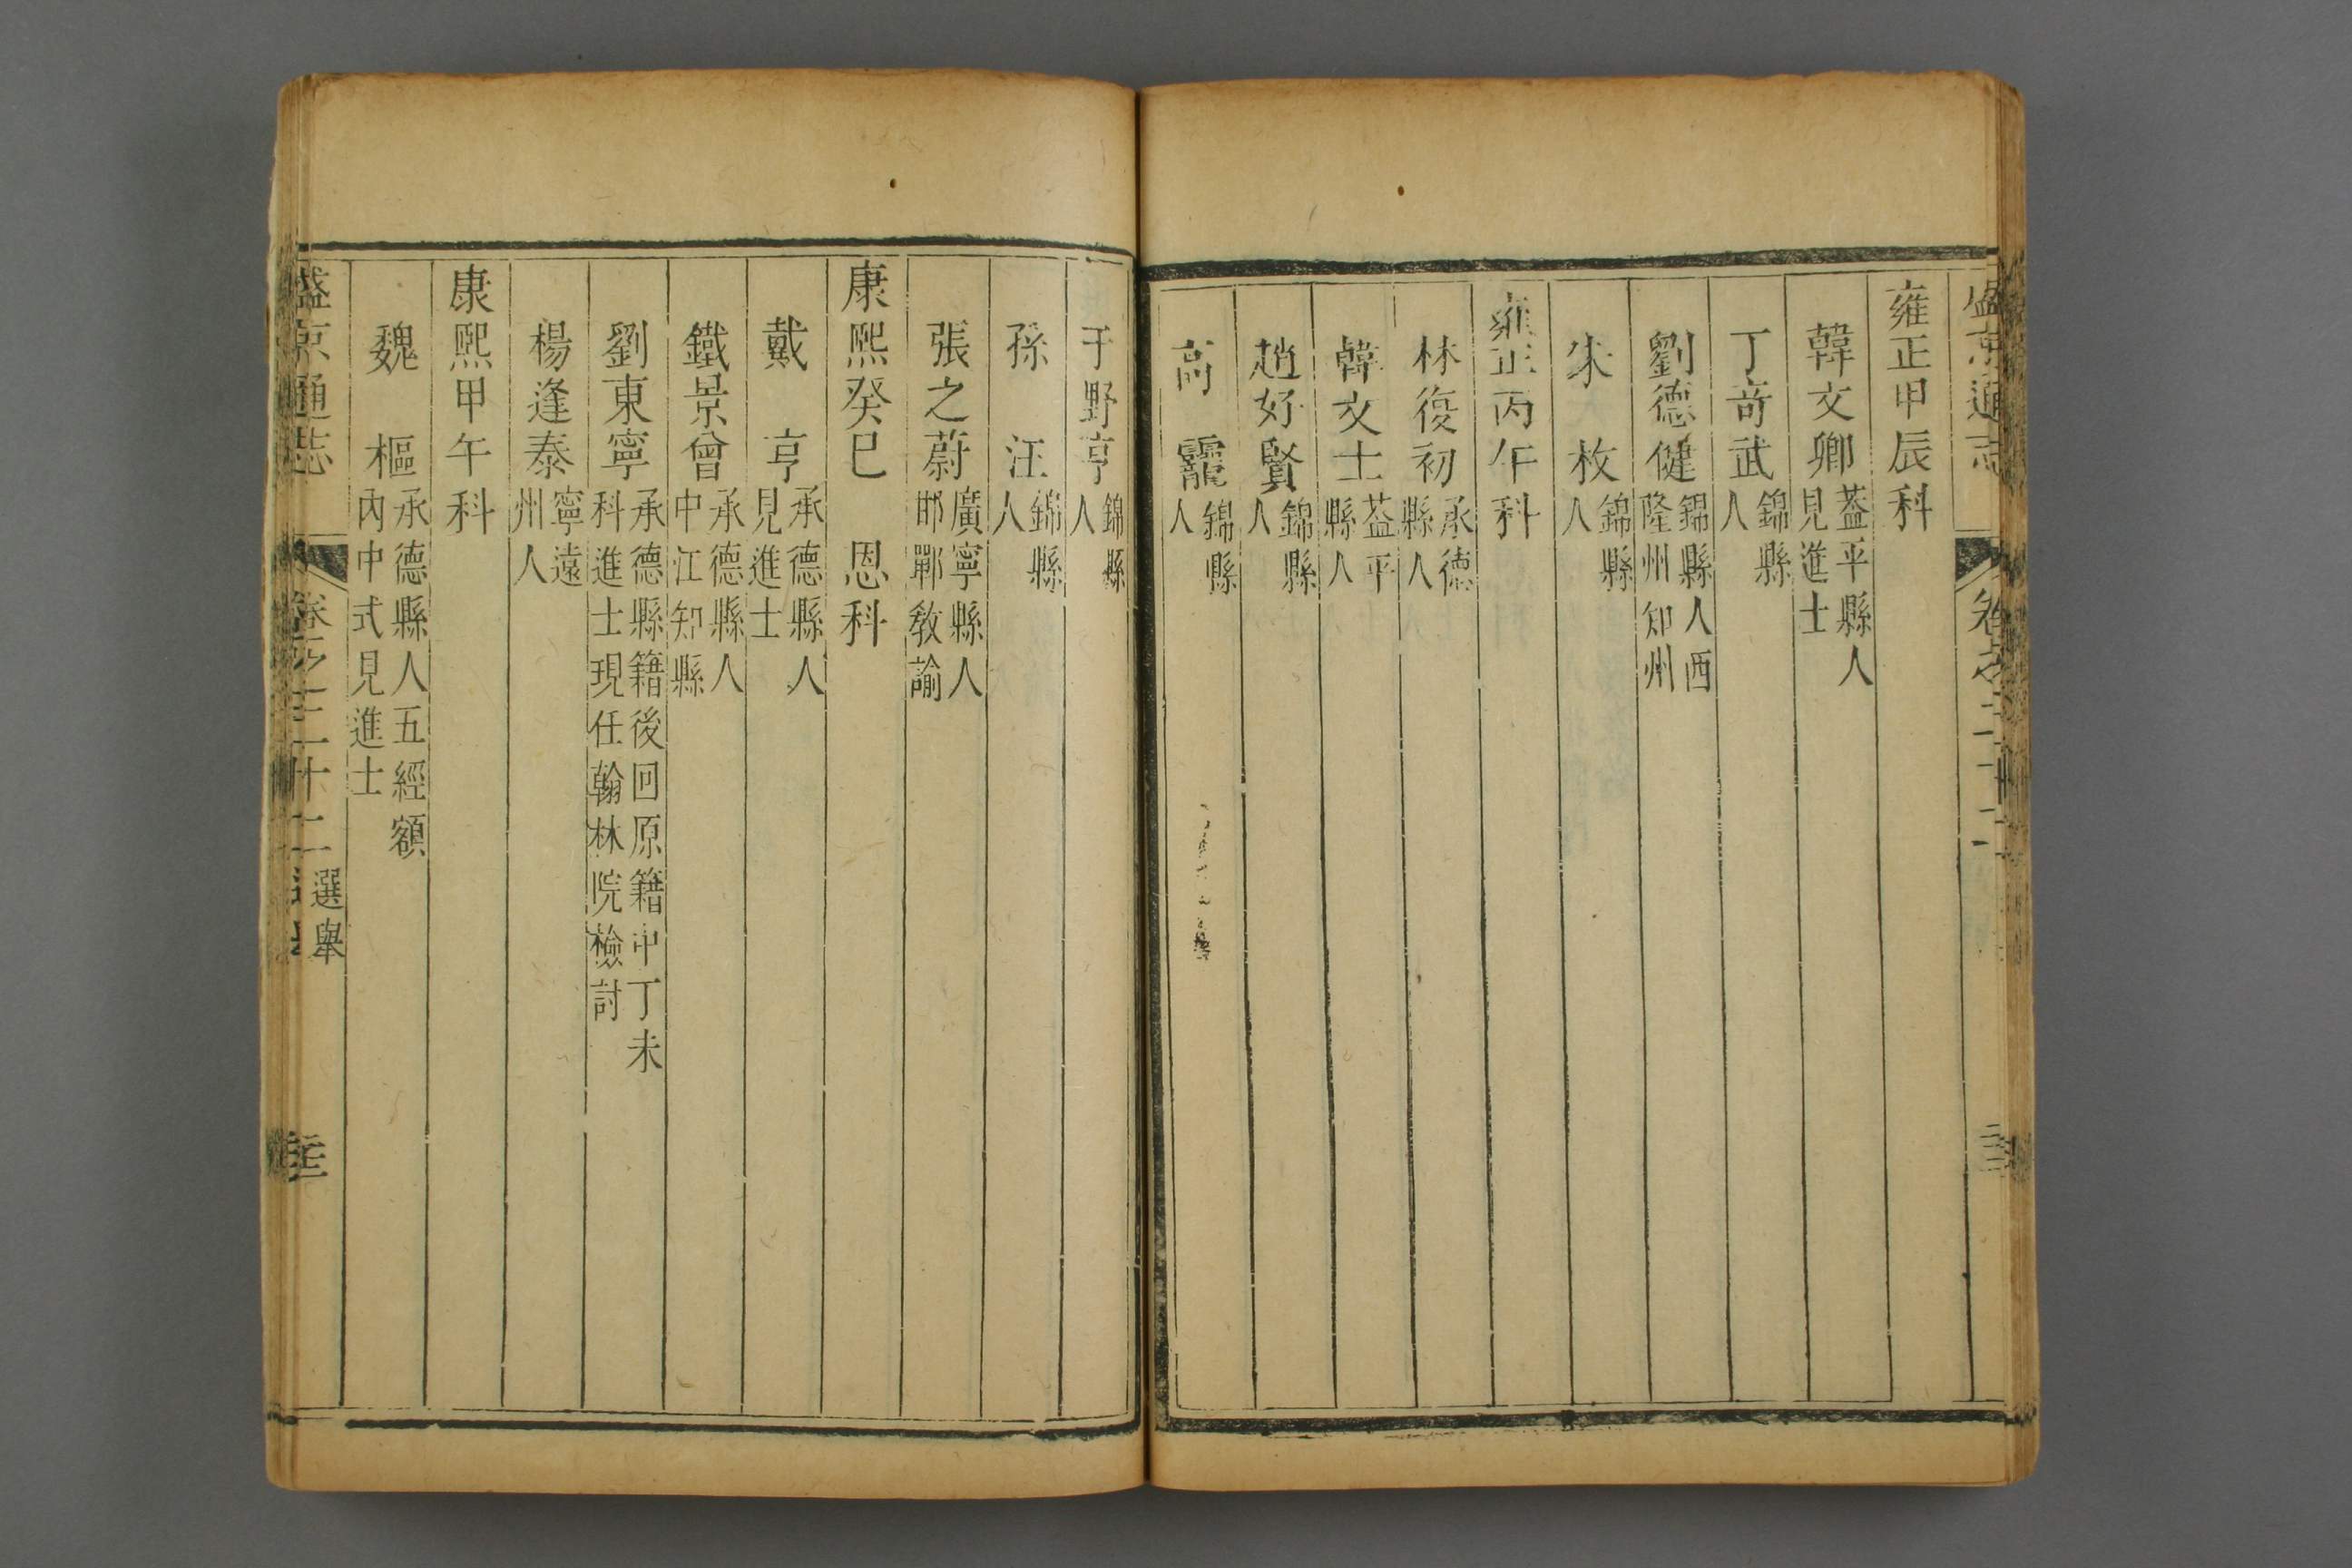 盛京通志 卷之三十二
雍正甲辰科
韓文卿 葢平縣人見進士
丁竒武 錦縣人
劉德健 錦縣人西隆州知州
朱枚 錦縣人
雍正丙午科
林復初 承德縣人
韓文士 葢平縣人
趙好賢 錦縣人
高靇 錦縣人
于野亨 錦縣人
孫汪 錦縣人
張之蔚 廣寧縣人邯鄲教諭
康熙癸巳恩科
戴亨 承德縣人見進士
鐵景曾 承德縣人中江知縣
劉東寧 承德縣籍後回原籍中丁未科進士現任翰林院檢討
楊逢泰 寧遠州人
康熙甲午科
魏樞 承德縣人五經額內中式見進士
盛京通志 卷之三十二 選舉